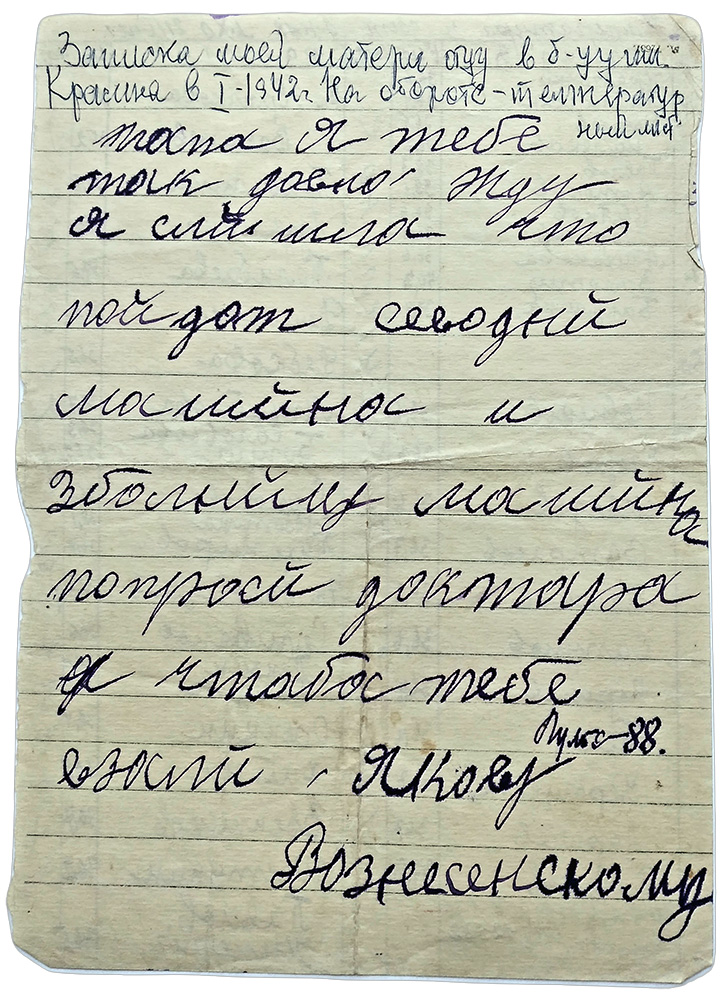 Записка моей матери отцу в б-цу им.
Красина в I-1942г. На обороте - температур
ный лист
папа Я тебе
так давно жду
я слйшила что
пойдот севоднй
машйна и
збольнйцу машйна
попросй доктара
я чтаба тебе
взялй. Якову
Пульс-88.
Вознесенскому